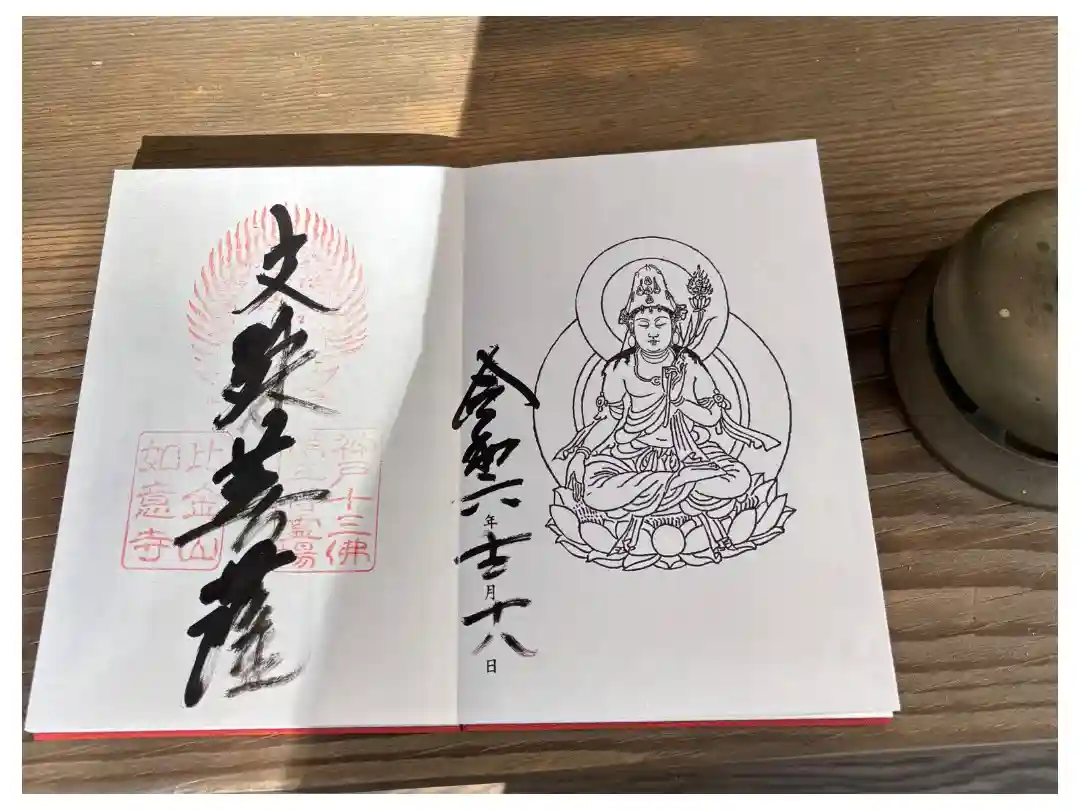 令和六年月十八日
文殊菩薩
神戸十三佛
靈場
比金山
如意寺